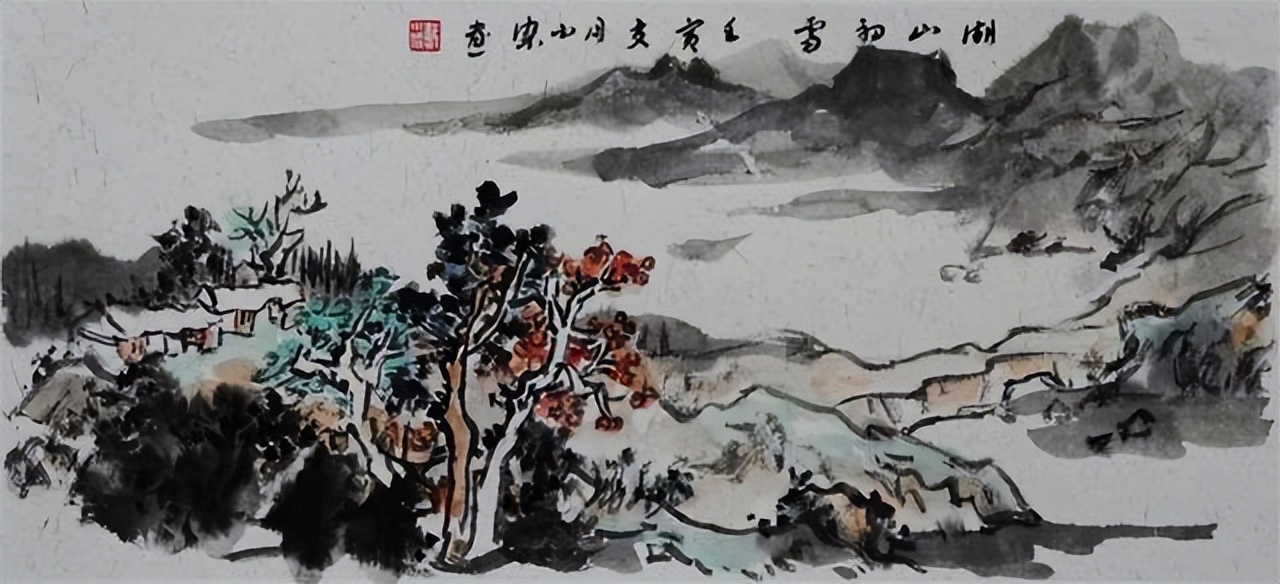 湖山初雪 壬寅亥月小梁画